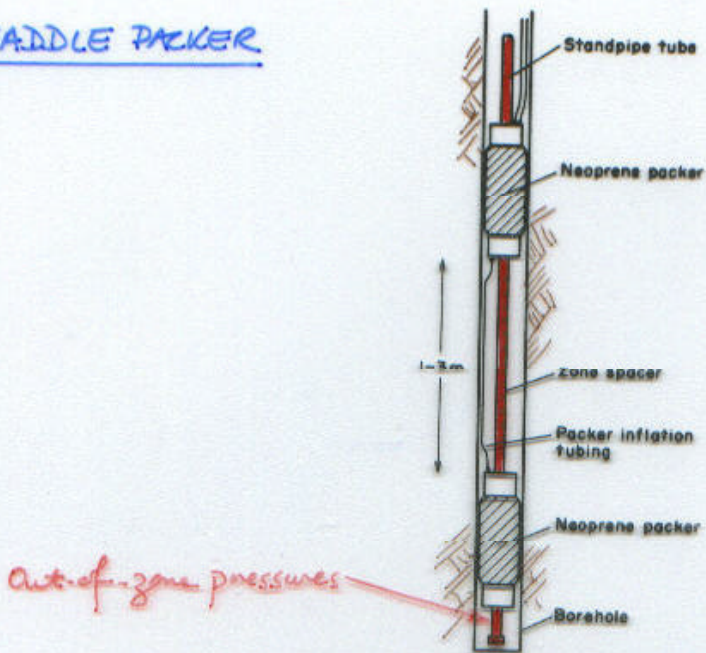 ADDLE PACKER
Standpipe tube
Neoprene packer
1-3m
Zone spacer
Packer inflation
tubing
Neoprene packer
Out-of-zone pressures
Borehole